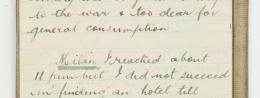 to the war & too dear for
general consumption
Milan I reached about
11 p.m. but I did not succeed
in finding an hotel till